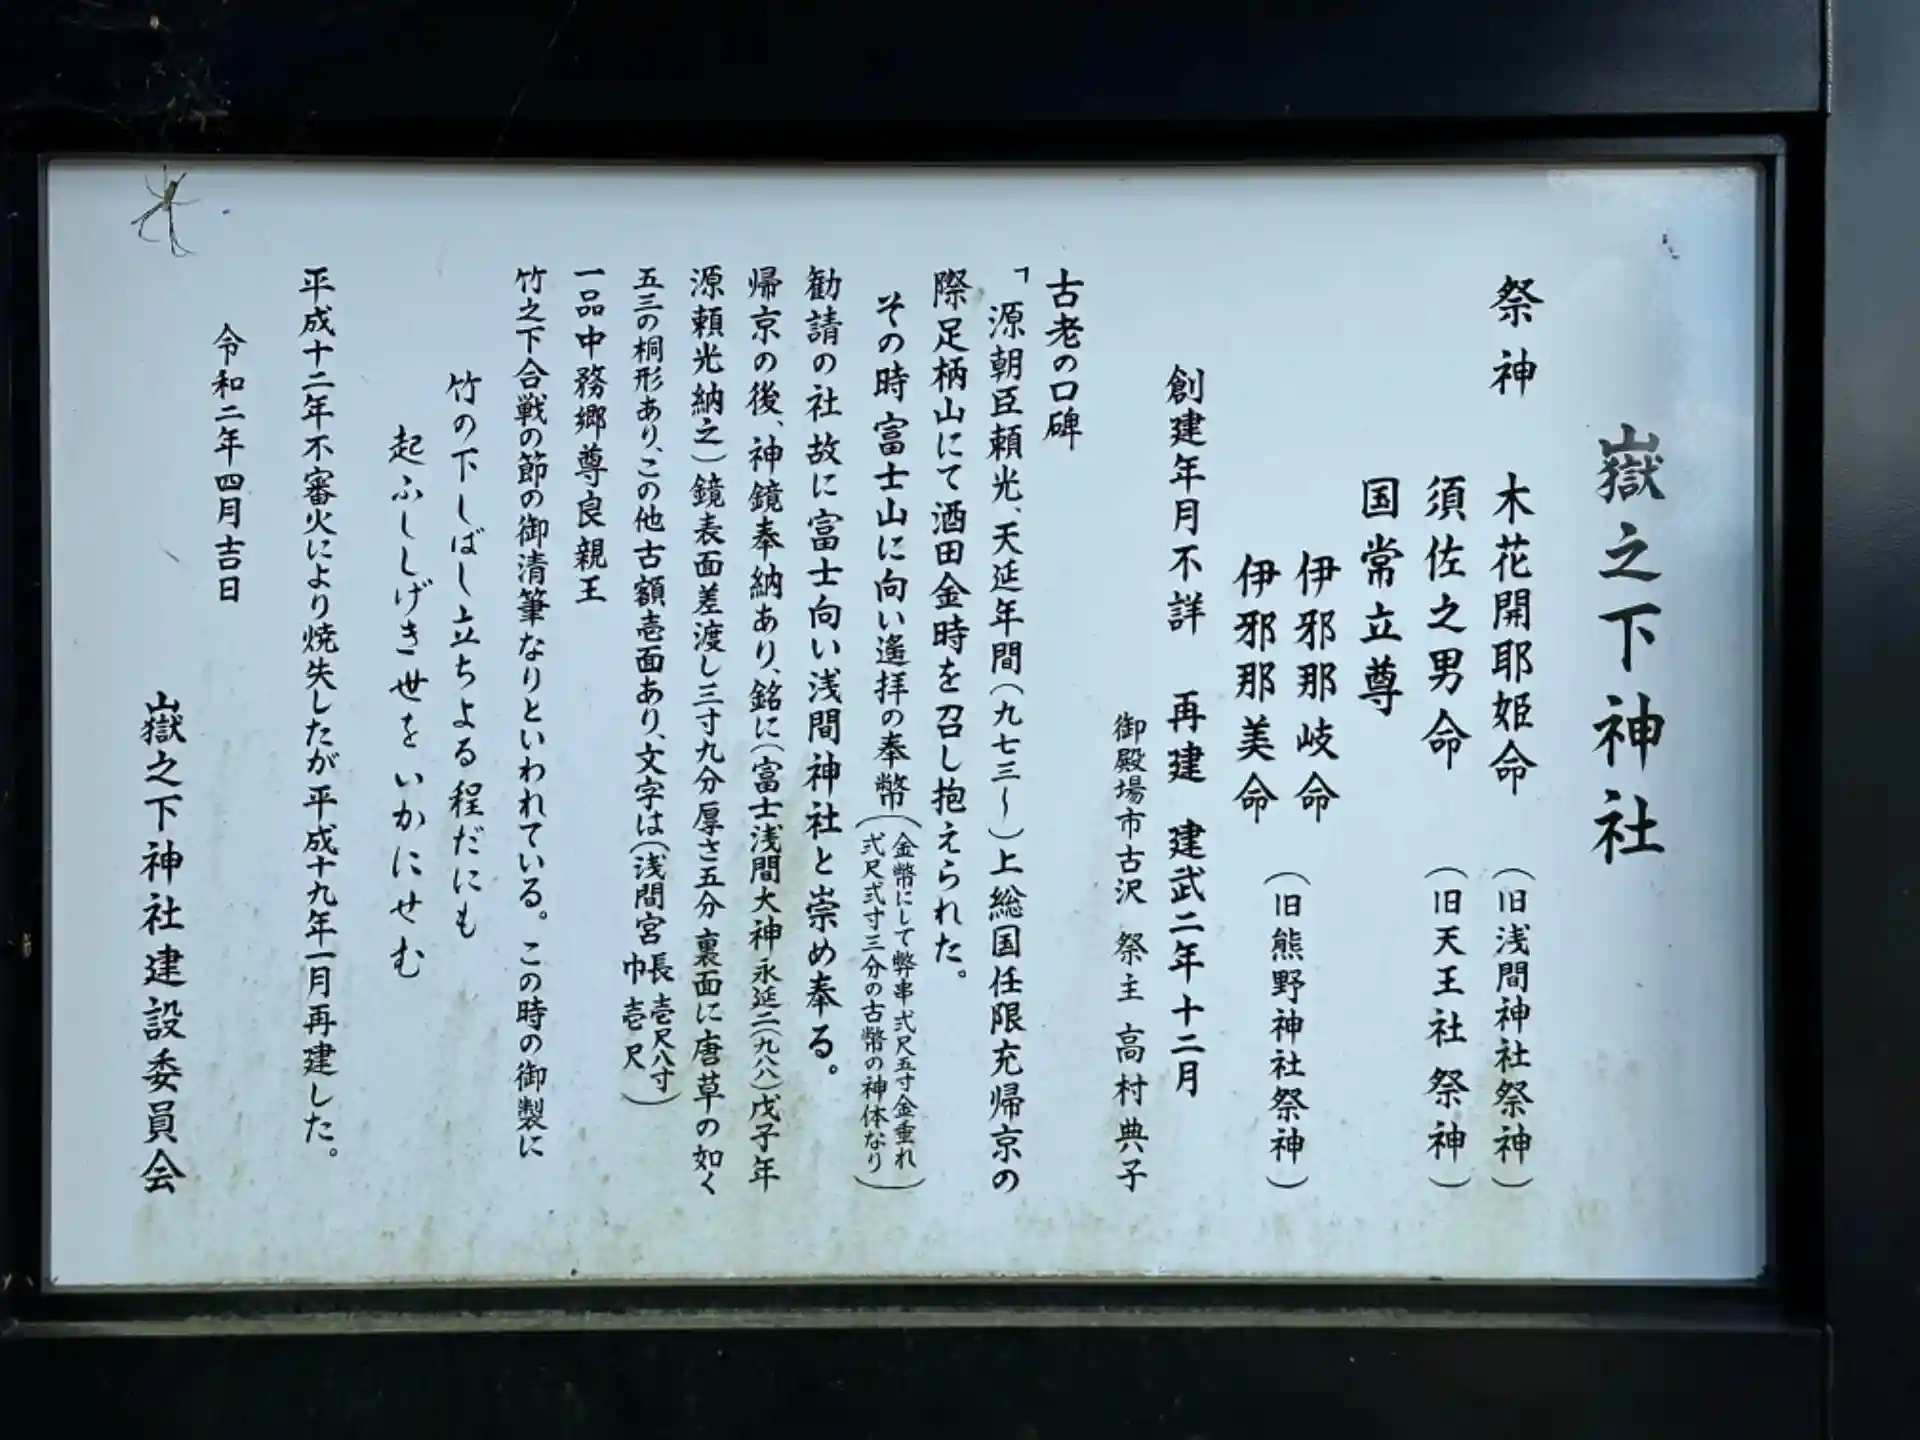 嶽之下神社
祭神 木花開耶姫命 （旧浅間神社祭神）
須佐之男命 （旧天王社祭神）
国常立尊
伊邪那岐命
伊邪那美命 （旧熊野神社祭神）
創建年月不詳 再建 建武二年十二月
御殿場市古沢 祭主 高村典子
古老の口碑
「源朝臣頼光、天延年間（九七三〜）上総国任限充帰京の
際足柄山にて酒田金時を召し抱えられた。
その時富士山に向い遙拝の奉幣（金幣にして弊串弍尺五寸金垂れ
弍尺弍寸三分の古幣の神体なり）
勧請の社故に富士向い浅間神社と崇め奉る。
帰京の後、神鏡奉納あり、銘に（富士浅間大神永延二（九八八）戊子年
源頼光納之）鏡表面差渡し三寸九分厚さ五分裏面に唐草の如く
五三の桐形あり、この他古額壱面あり、文字は（浅間宮 長壱尺八寸
巾壱尺）
一品中務郷尊良親王
竹之下合戦の節の御清筆なりといわれている。この時の御製に
竹の下しばし立ちよる程だにも
起ふししげき世をいかにせむ
平成十二年不審火により焼失したが平成十九年一月再建した。
令和二年四月吉日
嶽之下神社建設委員会